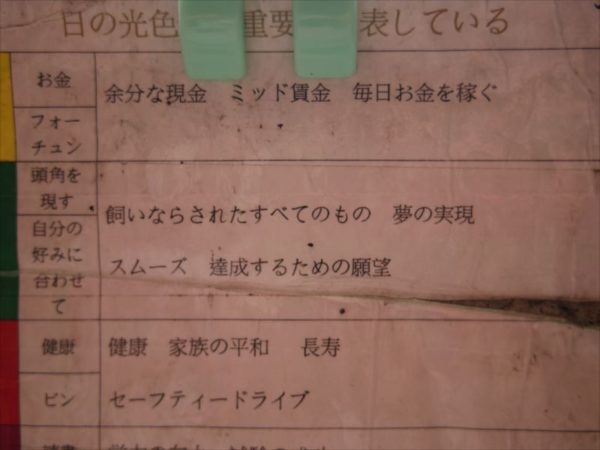 日の光色 重要 表している
お金
余分な現金 ミッド賃金 毎日お金を稼ぐ
フォー
チュン
頭角を
現す
飼いならされたすべてのもの 夢の実現
自分の
好みに
合わせ
て
スムーズ 達成するための願望
健康
健康 家族の平和 長寿
ピン
セーフティードライブ